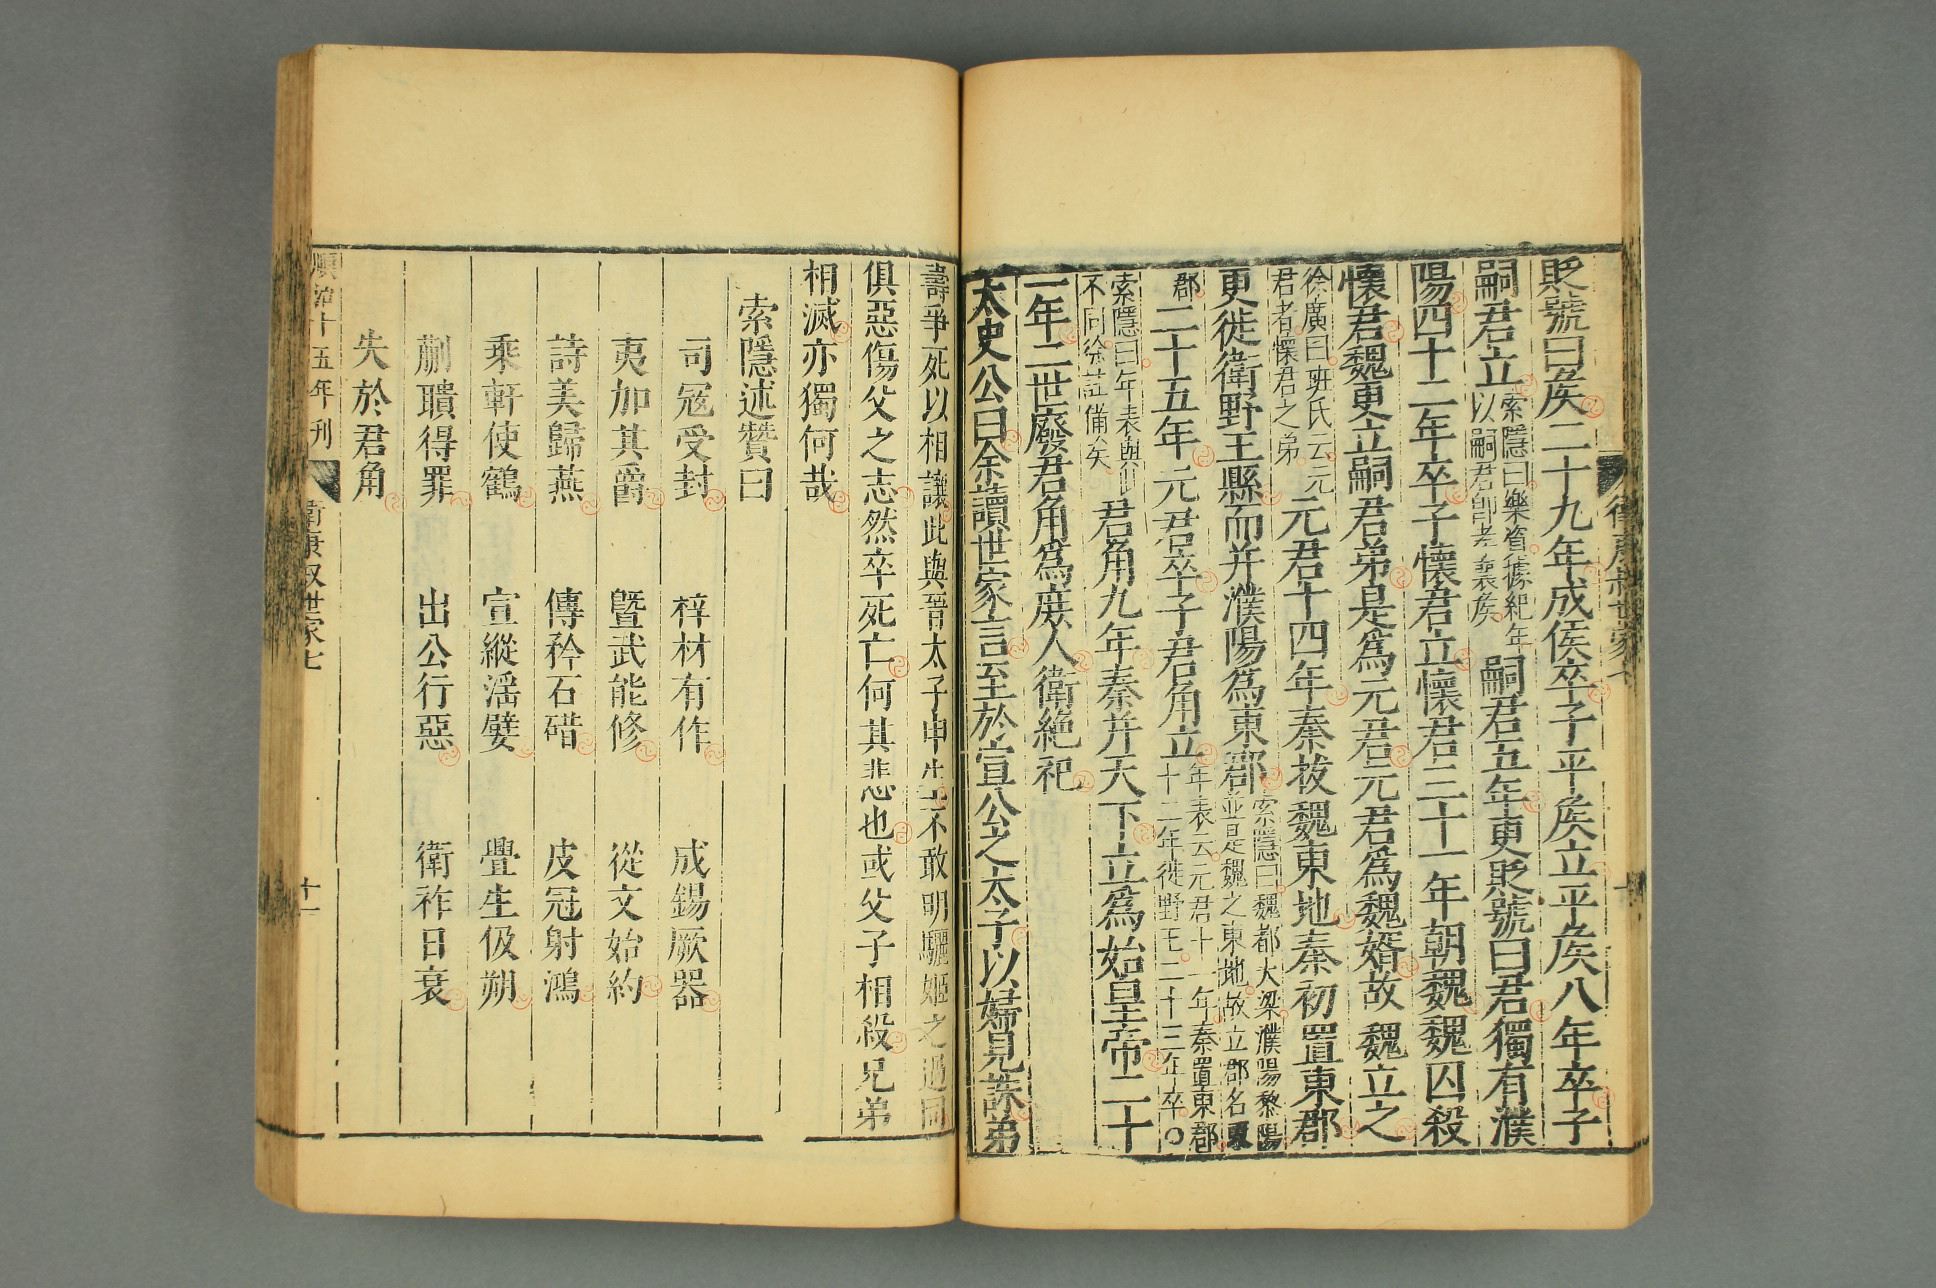 貶號曰侯二十九年成侯卒子平侯立平侯八年卒子
嗣君立索隱曰樂資據紀年以嗣君即孝襄侯嗣君五年更貶號曰君獨有濮
陽四十二年卒子懷君立懷君三十一年朝魏魏囚殺
懷君魏更立嗣君弟是爲元君元君爲魏婿故魏立之
徐廣曰班氏云元君者懷君之弟元君十四年秦拔魏東地秦初置東郡
更徙衛野王縣而并濮陽爲東郡索隱曰魏都大梁濮陽黎陽並是魏之東地故立郡名東
郡二十五年元君卒子君角立年表云元君十一年秦置東郡十二年徙野王二十三年卒○
索隱曰年表與此不同徐註備矣君角九年秦并天下立爲始皇帝二十
一年二世廢君角爲庶人衛絶祀
太史公曰余讀世家言至於宣公之太子以婦見誅弟
衛康叔世家七
壽爭死以相讓此與晉太子申生不敢明驪姬之過同
俱惡傷父之志然卒死亡何其悲也或父子相殺兄弟
相滅亦獨何哉
索隱述贊曰
司寇受封 梓材有作 成錫厥器
夷加其爵 曁武能修 從文始約
詩美歸燕 傳矜石碏 皮冠射鴻
乘軒使鶴 宣縱淫嬖 舋生伋朔
蒯聵得罪 出公行惡 衛祚日衰
失於君角
順治十五年刊 衛康叔世家七 十一